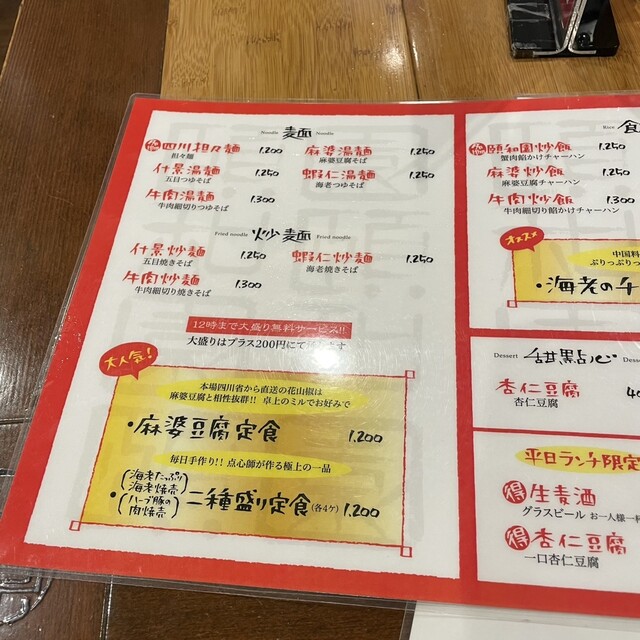 Noodle 麺 Noodle
四川担々麺 1.200
担々麺
麻婆湯麺 1.250
麻婆豆腐そば
什景湯麺 1.250
五目つゆそば
蝦仁湯麺 1.250
海老つゆそば
牛肉湯麺 1.300
牛肉細切りつゆそば
Fried noodle 炒麺 Fried noodle
什景炒麺 1.250
五目焼きそば
蝦仁炒麺 1.250
海老焼きそば
牛肉炒麺 1.300
牛肉細切り焼きそば
12時まで大盛り無料サービス!!
大盛りはプラス200円にて
大人気!
本場四川省から直送の花山椒は
麻婆豆腐と相性抜群!! 卓上のミルでお好みで
・麻婆豆腐定食 1.200
毎日手作り!! 点心師が作る極上の一品
・(海老たっぷり海老焼売)
(ハーブ豚の肉焼売)
二種盛り定食(各4ケ) 1.200
Rice 食
頤和園炒飯 1.250
蟹肉餡かけチャーハン
麻婆炒飯 1.250
麻婆豆腐チャーハン
牛肉炒飯 1.300
牛肉細切り餡かけチャーハン
オススメ
中国料
ぷりっぷりっ
・海老のチ
Dessert 甜點心 Desse
杏仁豆腐 40
杏仁豆腐
平日ランチ限定
得 生麦酒
グラスビール お一人様一
得 杏仁豆腐
一口杏仁豆腐